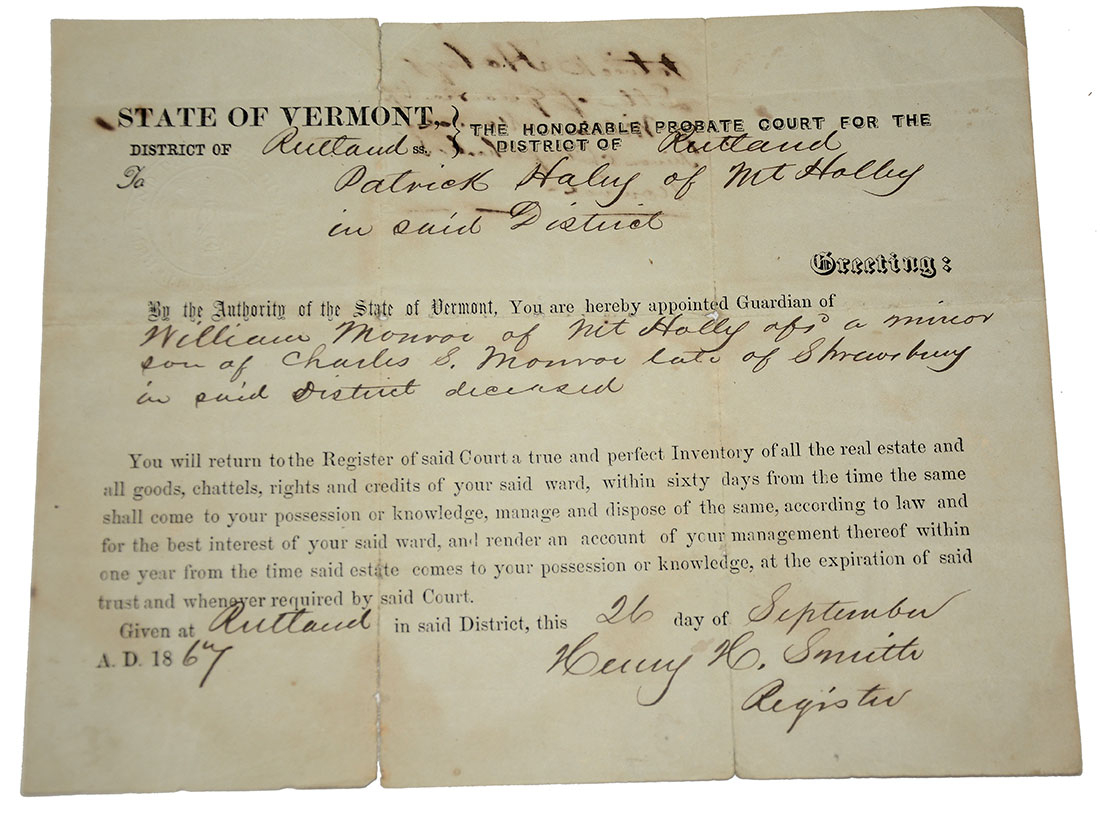 STATE OF VERMONT, } THE HONORABLE PROBATE COURT FOR THE
DISTRICT OF Rutland ss. } DISTRICT OF Rutland
To Patrick Haley of Mt Holley
in said District
Greeting:
By the Authority of the State of Vermont, You are hereby appointed Guardian of
William Monroe of Mt Holly afsd a minor
son of Charles S. Monroe late of Shrewsbury
in said District deceased
You will return to the Register of said Court a true and perfect Inventory of all the real estate and
all goods, chattels, rights and credits of your said ward, within sixty days from the time the same
shall come to your possession or knowledge, manage and dispose of the same, according to law and
for the best interest of your said ward, and render an account of your management thereof within
one year from the time said estate comes to your possession or knowledge, at the expiration of said
trust and whenever required by said Court.
Given at Rutland in said District, this 26 day of September
A. D. 1867
Henry H. Smith
Register